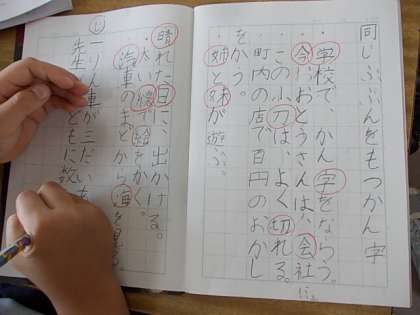 同じぶぶんをもつかん字
・学校で、かん字をならう。
・今日おとうさんは、会社
・この小刀は、よく切れる。
・町内の店で百円のおかし
をかう。
・姉と妹が遊ぶ。
・晴れた日に、出かける。
・太い線で絵をかく。
・汽車のまどから海を見る。
一りん車が三だい
先生 ともに教